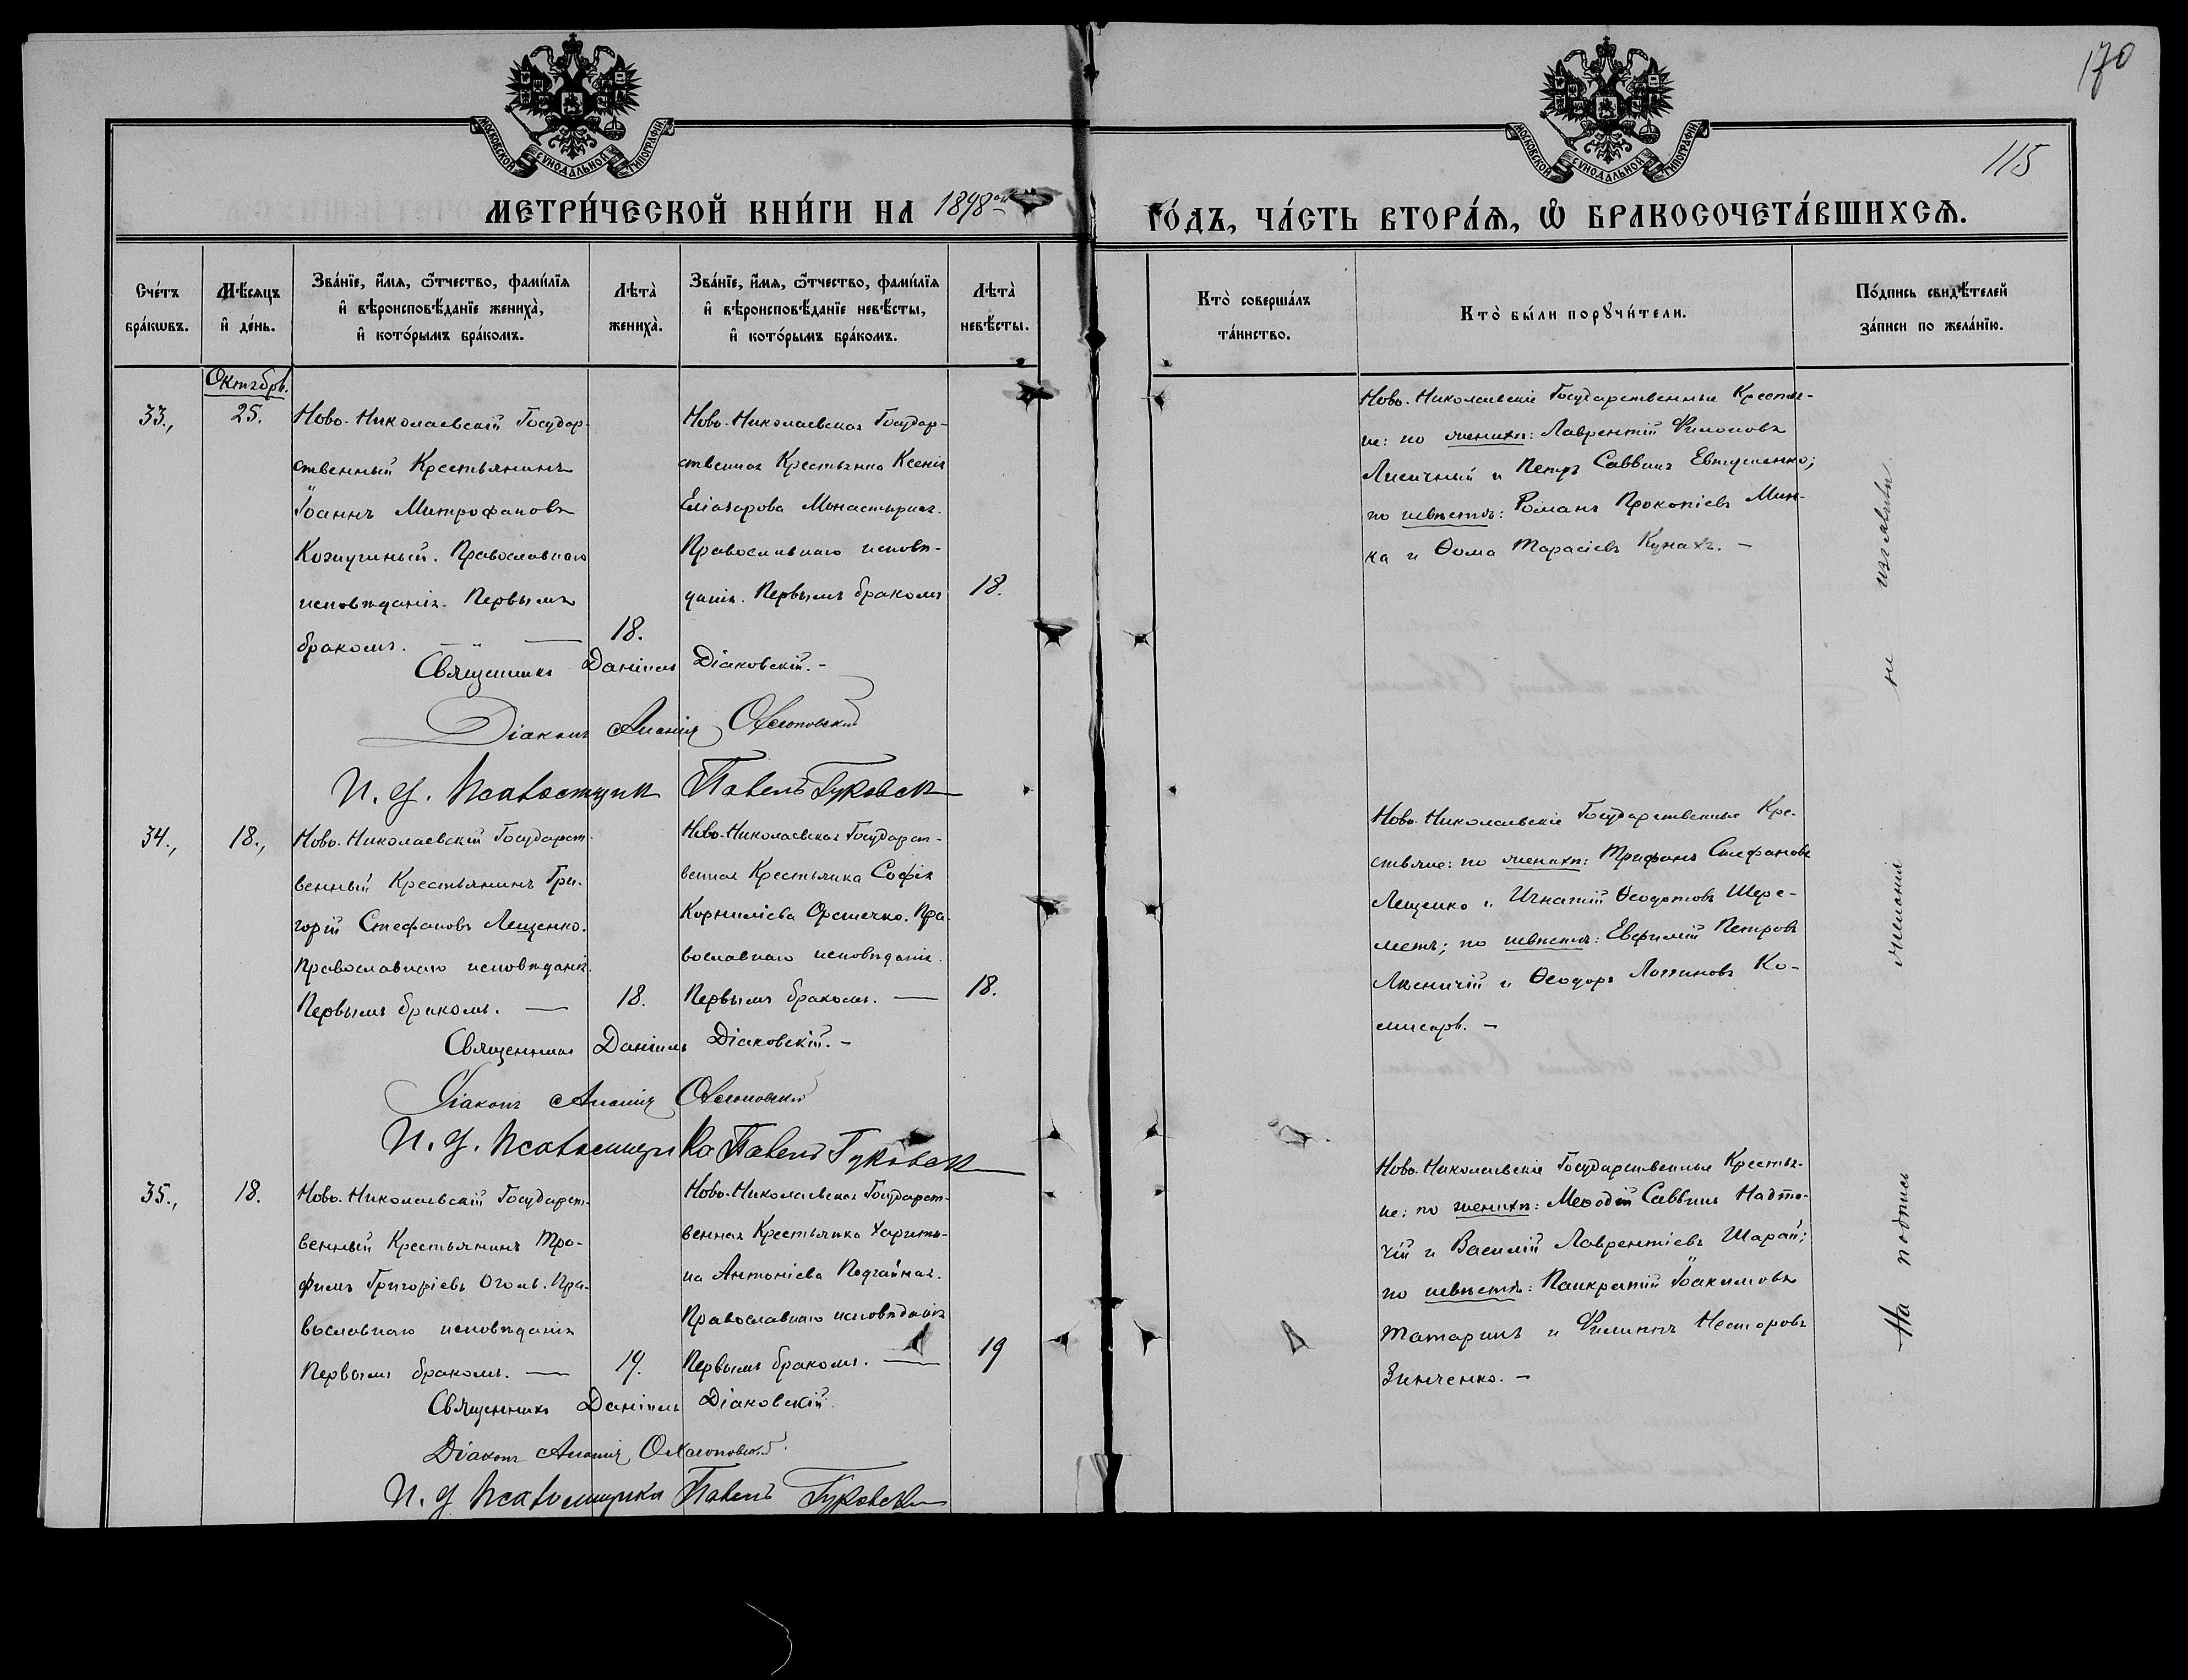 170
115
МОСКОВСКОЙ СѴНОДАЛЬНОЙ ТИПОГРАФІИ.
МОСКОВСКОЙ СѴНОДАЛЬНОЙ ТИПОГРАФІИ.
МЕТРИ́ЧЕСКОЙ КНИ́ГИ НА 1898 ГО́ДЪ, ЧА́СТЬ ВТОРА́Я, Ѡ БРАКОСОЧЕТА́ВШИХСЯ.
Сче́тъ
бра́кѡвъ.
Мѣ́сяцъ
и҆ де́нь.
Зва́нїе, и҆́мя, ѻ҆́тчество, фами́лїя
и҆ вѣроисповѣ́данїе жениха̀,
и҆ кото́рымъ бра́комъ.
Лѣта̀
жениха̀.
Зва́нїе, и҆́мя, ѻ҆́тчество, фами́лїя
и҆ вѣроисповѣ́данїе невѣ́сты,
и҆ кото́рымъ бра́комъ.
Лѣта̀
невѣ́сты.
Кто̀ соверша́лъ
та́инство.
Кто̀ бы́ли порꙋчи́тели.
По́дпись свидѣ́телей
за́писи по жела́нїю.
Октябрь.
33.,
25.
Ново-Николаевскій Государ-
ственный Крестьянинъ
Іоаннъ Митрофановъ
Православнаго
исповѣданія. Первымъ
бракомъ.
18.
Ново-Николаевская Государ-
ственная Крестьянка Ксенія
Еліазарова Монастырная.
Православнаго исповѣ-
данія. Первымъ бракомъ
18.
Ново-Николаевскіе Государственные Крестья-
не: по женихѣ: Лаврентій Филоновъ
Лисичный и Петръ Саввинъ Евтушенко;
по невѣстѣ: Романъ Прокопіевъ Мин-
ка и Ѳома Тарасіевъ Кунахъ. —
Священникъ Даніилъ Діаковскій. -
Діаконъ Ананія
И. д. Псаломщика Павелъ Гуковск
34.,
18.,
Ново-Николаевскій Государст-
венный Крестьянинъ Гри-
горій Стефановъ Лещенко.
Православнаго исповѣданія.
Первымъ бракомъ. —
18.
Ново-Николаевская Государст-
венная Крестьянка Софія
Корниліева Орешечко. Пра-
вославнаго исповѣданія.
Первымъ бракомъ. —
18.
Ново-Николаевскіе Государственные Кре-
стьяне: по женихѣ: Трифонъ Стефановъ
Лещенко и Игнатій Ѳеодотовъ Шере-
метъ; по невѣстѣ: Евфимій Петровъ
и Ѳеодоръ Логиновъ Ко-
мисаръ. —
Священникъ Даніилъ Діаковскій. -
Діаконъ Ананія
И. д. Псаломщика Павелъ Гуковск
35.,
18.
Ново-Николаевскій Государст-
венный Крестьянинъ Тро-
фимъ Григоріевъ Оголь. Пра-
вославнаго исповѣданія
Первымъ бракомъ. —
19.
Ново-Николаевская Государст-
венная Крестьянка Харити-
на Антоніева Подгайная.
Православнаго исповѣданія
Первымъ бракомъ. —
19
Ново-Николаевскіе Государственные Крестья-
не: по женихѣ: Меѳодій Саввинъ Надто-
чій и Василій Лаврентіевъ Шарай;
по невѣстѣ: Панкратій Іоакимовъ
Татаринъ и Филиппъ Несторовъ
Зинченко. —
Священникъ Даніилъ Діаковскій.
Діаконъ Ананія
И. д Псаломщика Павелъ Гуковск
На подпись желанія не изъявили